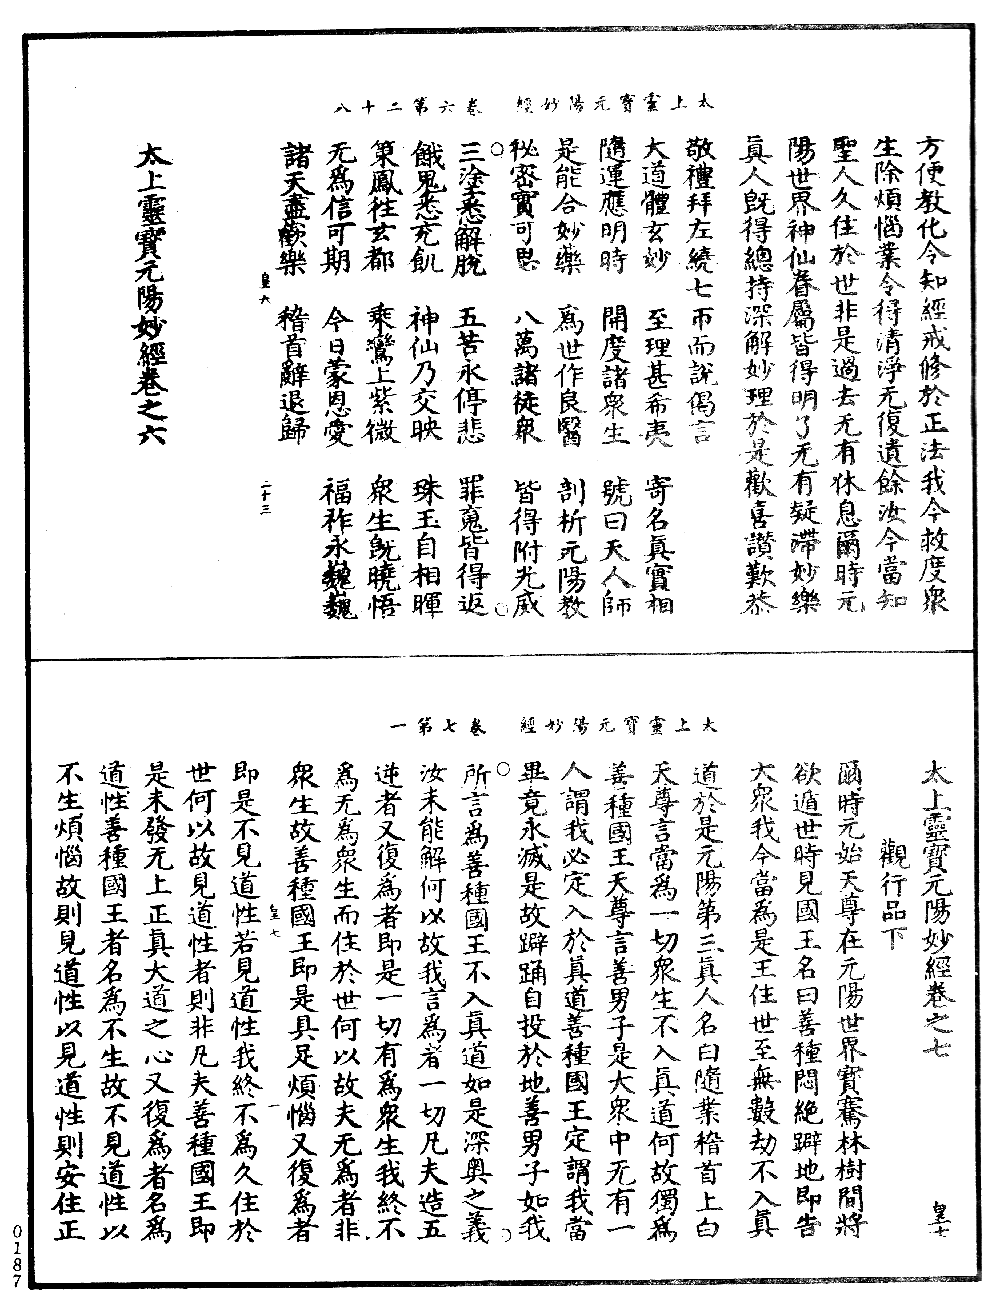 太上靈寶元陽妙經　卷六第二十八
方便教化令知經戒修於正法我今救度衆
生除煩惱業令得清淨无復遺餘汝今當知
聖人久住於世非是過去无有休息爾時元
陽世界神仙眷屬皆得明了无有疑滯妙樂
眞人既得總持深解妙理於是歡喜讚歎恭
敬禮拜左繞七帀而說偈言
大道體玄妙　至理甚希夷　寄名眞實相
隨運應明時　開度諸衆生　號曰天人師
是能合妙藥　爲世作良醫　剖析元陽教
祕密實可思　八萬諸徒衆　皆得附光威
三塗悉解脫　五苦永停悲　罪魂皆得返
餓鬼悉充飢　神仙乃交映　珠玉自相暉
策鳳往玄都　乘鸞上紫微　衆生既曉悟
无爲信可期　今日蒙恩愛　福祚永巍巍
諸天盡歡樂　稽首辭退歸
皇六　二十三
太上靈寶元陽妙經卷之六
太上靈寶元陽妙經　卷七第一
太上靈寶元陽妙經卷之七　皇七
觀行品下
爾時元始天尊在元陽世界寶騫林樹間將
欲遁世時見國王名曰善種悶絕躃地即告
大衆我今當爲是王住世至無數劫不入眞
道於是元陽第三眞人名曰隨業稽首上白
天尊言當爲一切衆生不入眞道何故獨爲
善種國王天尊言善男子是大衆中无有一
人謂我必定入於眞道善種國王定謂我當
畢竟永滅是故躃踊自投於地善男子如我
所言爲善種國王不入眞道如是深奥之義
汝未能解何以故我言爲者一切凡夫造五
逆者又復爲者即是一切有爲衆生我終不
爲无爲衆生而住於世何以故夫无爲者非
衆生故善種國王即是具足煩惱又復爲者
皇七　一
即是不見道性若見道性我終不爲久住於
世何以故見道性者則非凡夫善種國王即
是未發无上正眞大道之心又復爲者名爲
道性善種國王者名爲不生故不見道性以
不生煩惱故則見道性以見道性則安住正
0187